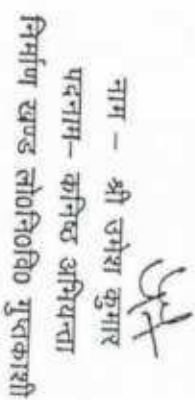 नाम – श्री उमेश कुमार
पदनाम– कनिष्ठ अभियन्ता
निर्माण खण्ड लो०नि०वि० गुप्तकाशी